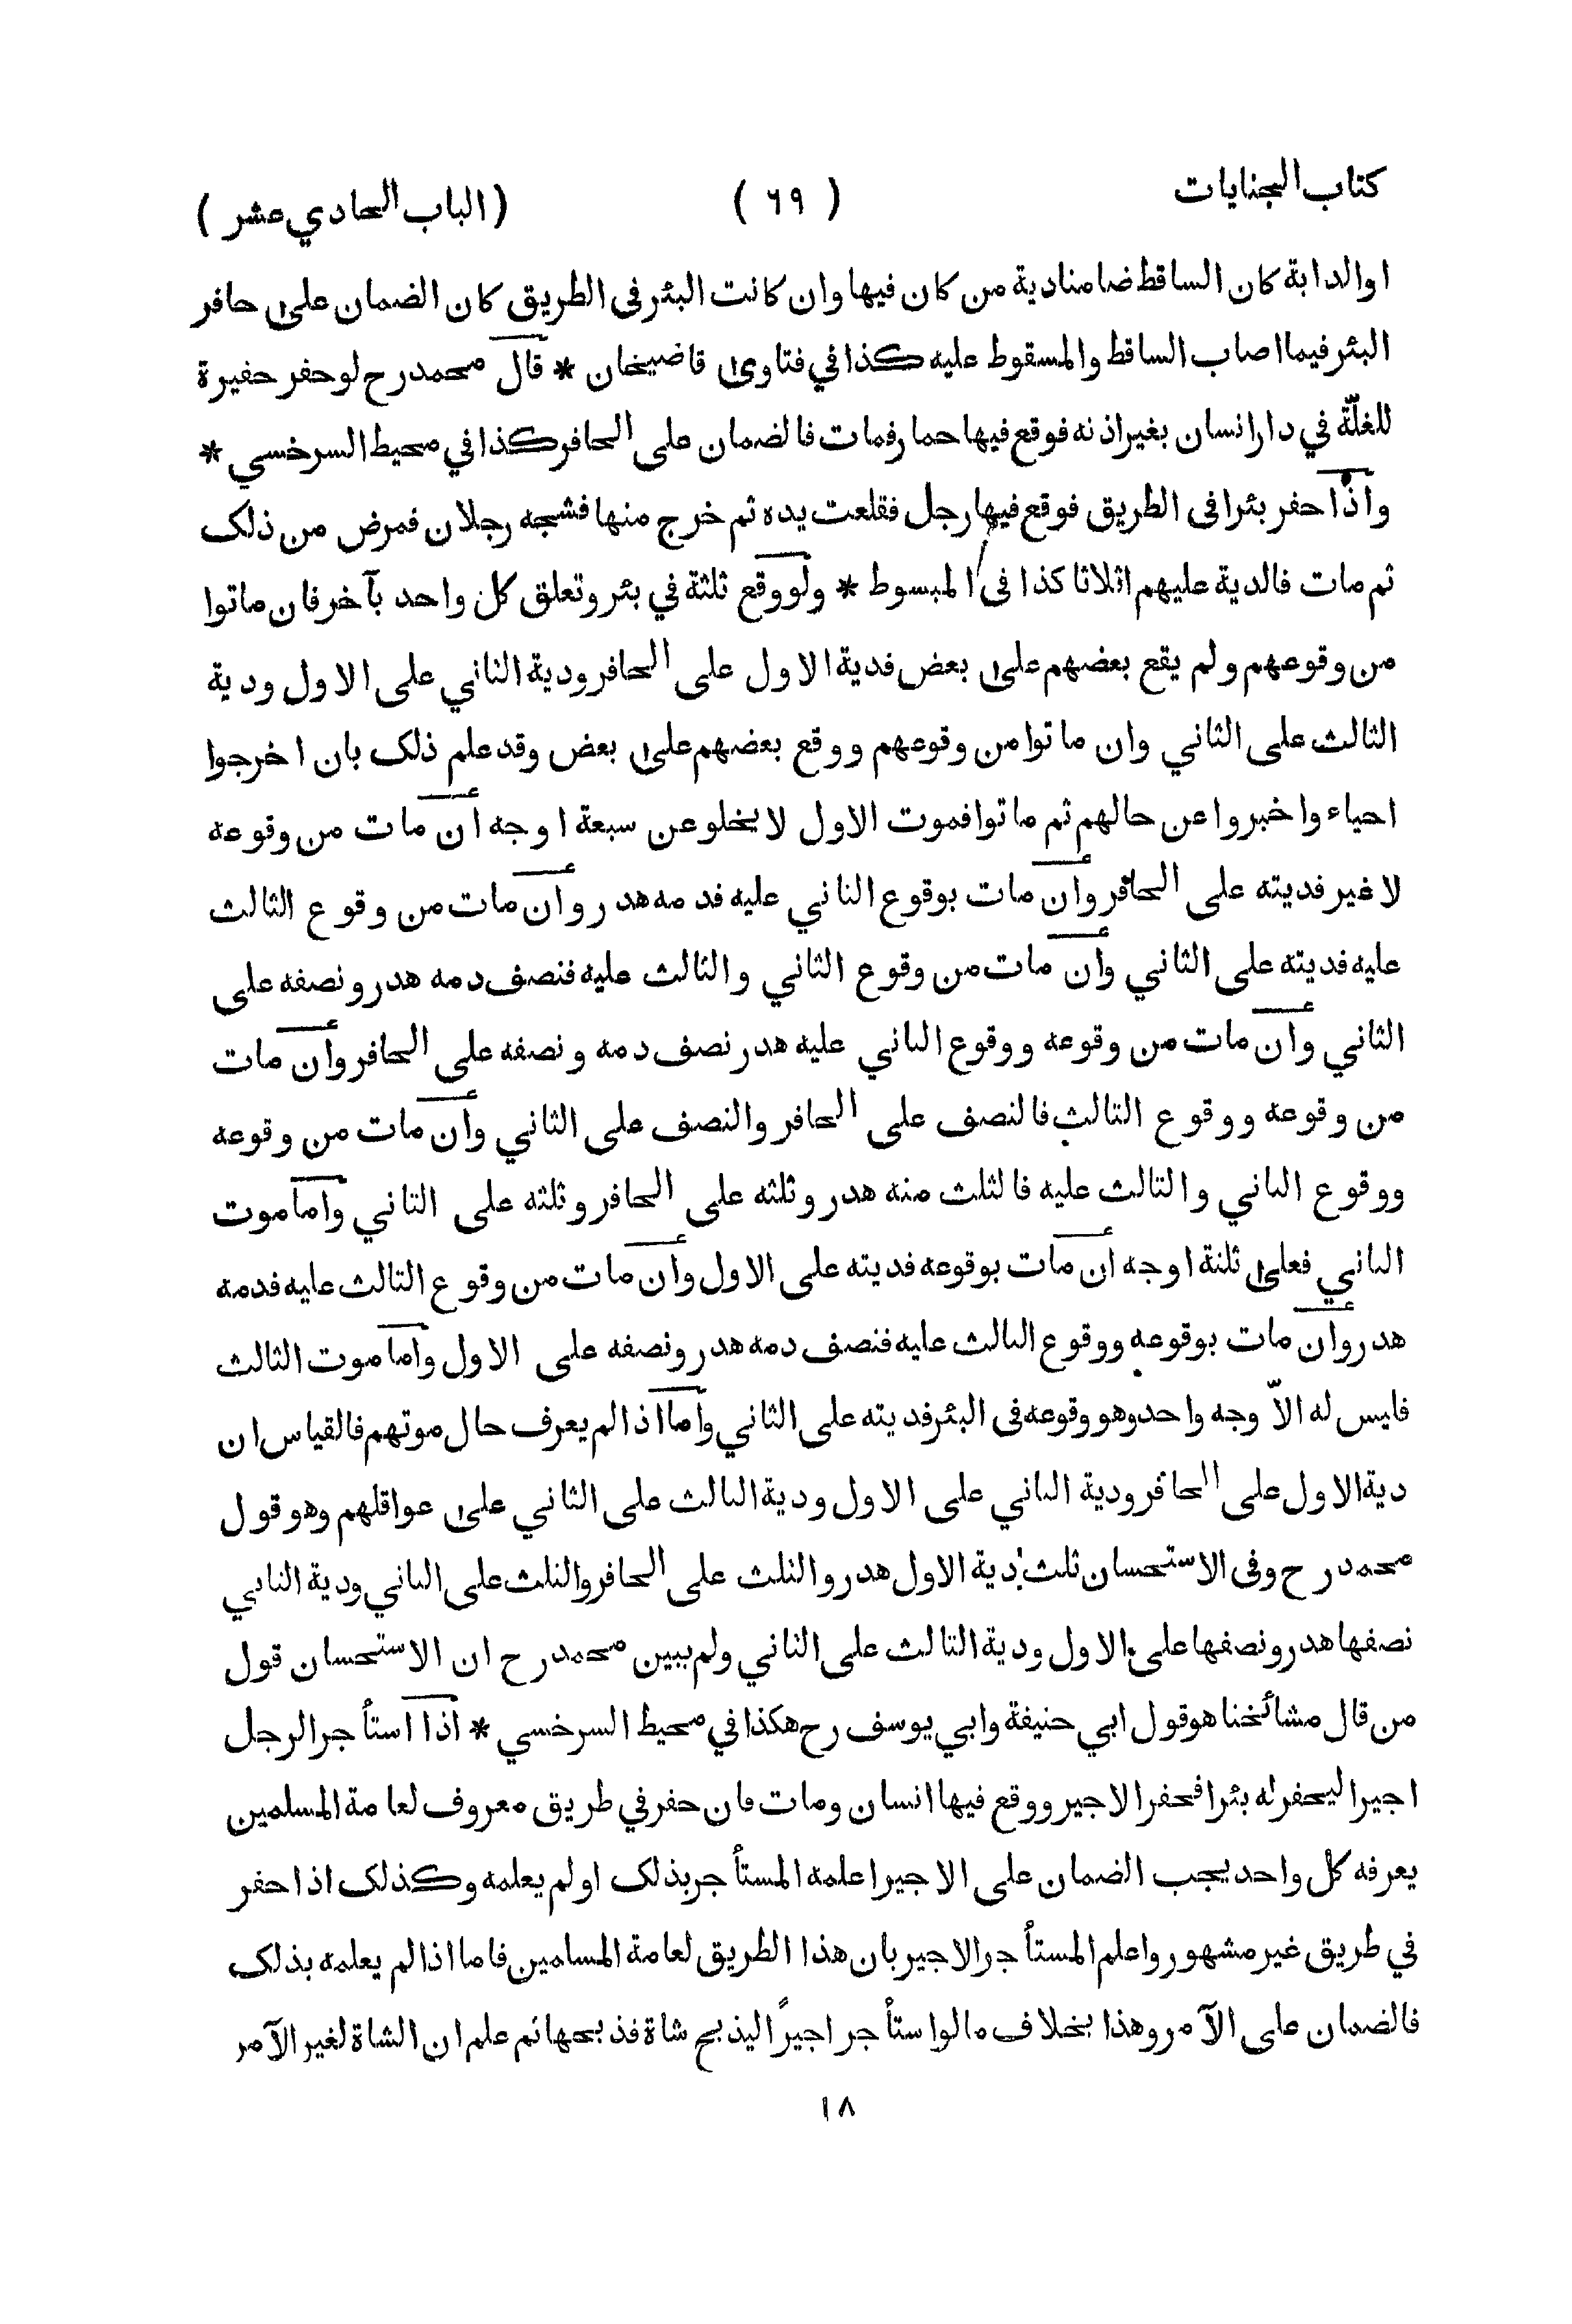 كتاب الجنايات
( ٦٩ )
( الباب الحادي عشر )
او الدابة كان الساقط ضامنا دية من كان فيها وان كانت البئر فى الطريق كان الضمان على حافر
البئر فيما اصاب الساقط والمسقوط عليه كذا في فتاوى قاضيخان * قال محمد رح لو حفر حفيرة
للغلّة في دار انسان بغير اذنه فوقع فيها حمار فمات فالضمان على الحافر كذا في محيط السرخسي *
واذا حفر بئرا فى الطريق فوقع فيها رجل فقلعت يده ثم خرج منها فشجه رجلان فمرض من ذلک
ثم مات فالدية عليهم اثلاثا كذا فى المبسوط * ولو وقع ثلثة في بئر وتعلق كل واحد بآخر فان ماتوا
من وقوعهم ولم يقع بعضهم على بعض فدية الاول على الحافر ودية الثاني على الاول ودية
الثالث على الثاني وان ماتوا من وقوعهم ووقع بعضهم على بعض وقد علم ذلک بان اخرجوا
احياء واخبروا عن حالهم ثم ماتوا فموت الاول لا يخلو عن سبعة اوجه ان مات من وقوعه
لا غير فديته على الحافر وان مات بوقوع الثاني عليه فدمه هدر وان مات من وقوع الثالث
عليه فديته على الثاني وان مات من وقوع الثاني والثالث عليه فنصف دمه هدر ونصفه على
الثاني وان مات من وقوعه ووقوع الثاني عليه هدر نصف دمه ونصفه على الحافر وان مات
من وقوعه ووقوع الثالث فالنصف على الحافر والنصف على الثاني وان مات من وقوعه
ووقوع الثاني والثالث عليه فالثلث منه هدر وثلثه على الحافر وثلثه على الثاني واما موت
الثاني فعلى ثلثة اوجه ان مات بوقوعه فديته على الاول وان مات من وقوع الثالث عليه فدمه
هدر وان مات بوقوعه ووقوع الثالث عليه فنصف دمه هدر ونصفه على الاول واما موت الثالث
فليس له الاّ وجه واحد وهو وقوعه فى البئر فديته على الثاني واما اذا لم يعرف حال موتهم فالقياس ان
دية الاول على الحافر ودية الثاني على الاول ودية الثالث على الثاني على عواقلهم وهو قول
محمد رح وفى الاستحسان ثلث دية الاول هدر والثلث على الحافر والثلث على الثاني ودية الثاني
نصفها هدر ونصفها على الاول ودية الثالث على الثاني ولم يبين محمد رح ان الاستحسان قول
من قال مشائخنا هو قول ابي حنيفة وابي يوسف رح هكذا في محيط السرخسي * اذا استأجر الرجل
اجيرا ليحفر له بئرا فحفر الاجير ووقع فيها انسان ومات فان حفر في طريق معروف لعامة المسلمين
يعرفه كل واحد يجب الضمان على الاجير اعلمه المستأجر بذلک او لم يعلمه وكذلک اذا حفر
في طريق غير مشهور واعلم المستأجر الاجير بان هذا الطريق لعامة المسلمين فاما اذا لم يعلمه بذلک
فالضمان على الآمر وهذا بخلاف ما لو استأجر اجيرًا ليذبح شاة فذبحها ثم علم ان الشاة لغير الآمر
١٨